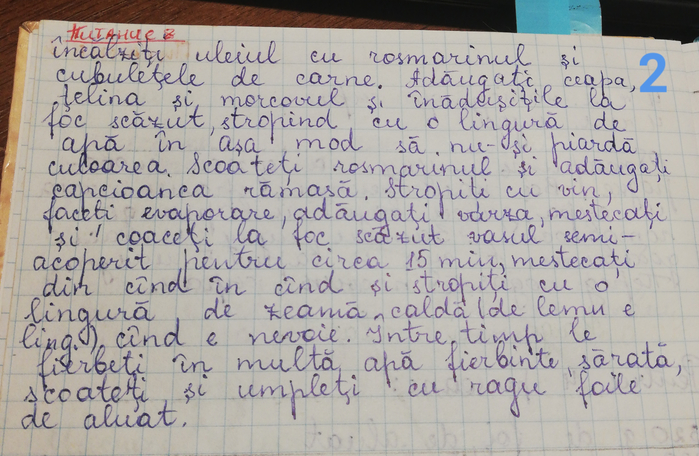 Питание 3
încălziți uleiul cu rosmarinul și
cubulețele de carne. Adăugați ceapa, 2
țelina și morcovul și înădușițile la
foc scăzut, stropind cu o lingură de
apă în așa mod să nu-și piardă
culoarea. Scoateți rosmarinul și adăugați
capcioanca rămasă. Stropiți cu vin,
faceti evaporare, adăugați varza, mestecați
și coaceți la foc scăzut vasul semi-
acoperit pentru circa 15 min, mestecați
din cînd în cînd și stropiți cu o
lingură de zeamă caldă (de lemn e
ling.), cînd e nevoie. Între timp le
fierbeți în multă apă fierbinte, sărată,
scoateți și umpleți cu ragu foile
de aluat.